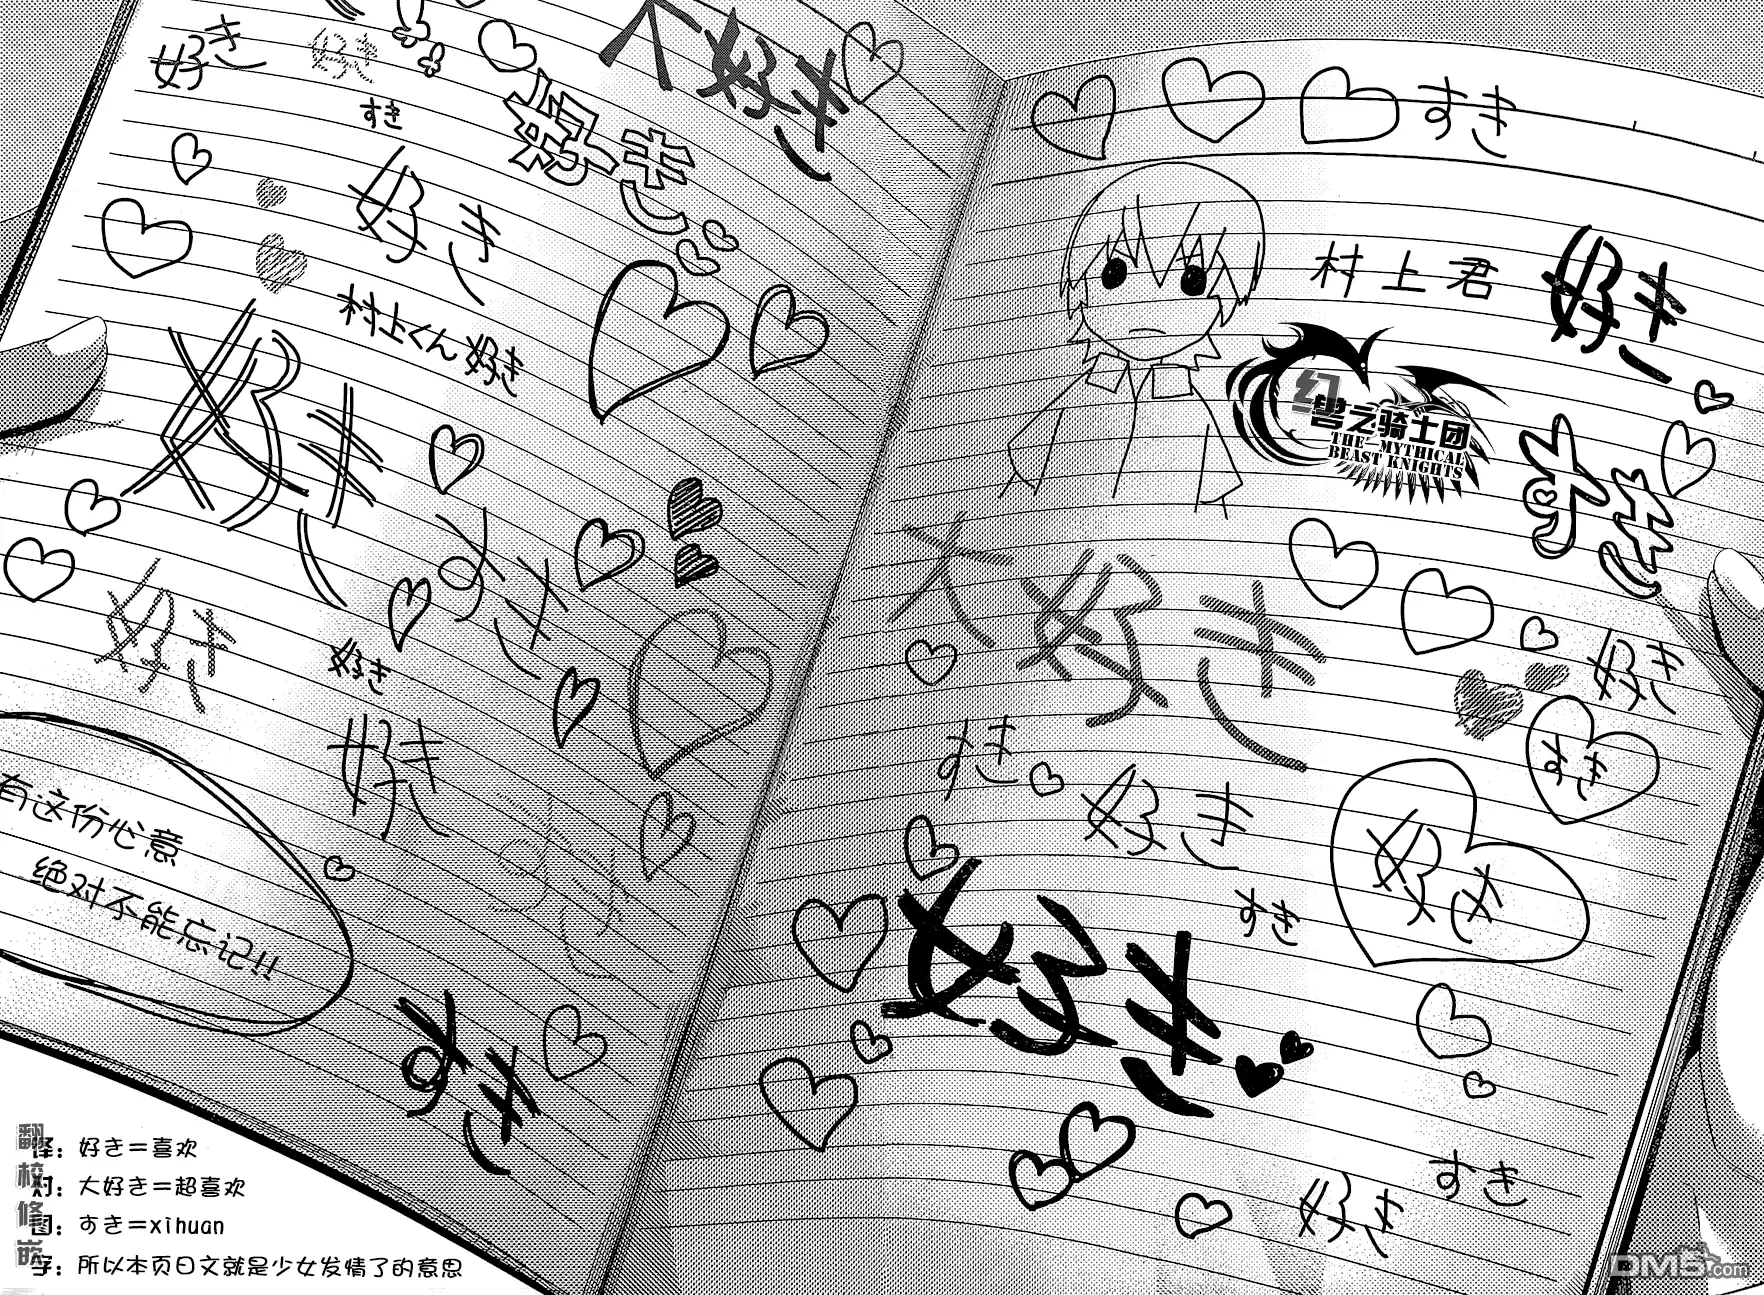 好き
好き
すき
好き
大好き
好き
村上くん 好き
好き
すき
好き
好き
好き
すき
有这份心意
绝对不能忘记!!
すき
すき
村上君 好き
幻兽之骑士团
THE MYTHICAL
BEAST KNIGHTS
好き
大好き
好き
すき
すき
好き
好き
すき
好き
好き
すき
翻校修嵌
译: 好き=喜欢
对: 大好き=超喜欢
图: すき=xihuan
字: 所以本页日文就是少女发情了的意思
DM5.com